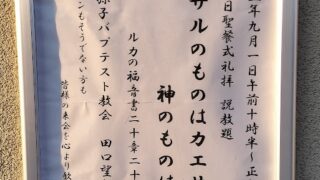 年九月一日午前十時半〜正
日聖餐式礼拝 説教題
サルのものはカエサ
神のものは
ルカの福音書二十章二十
孫子バプテスト教会 田口望
ンもそうでない方も
皆様の来会を心より歓